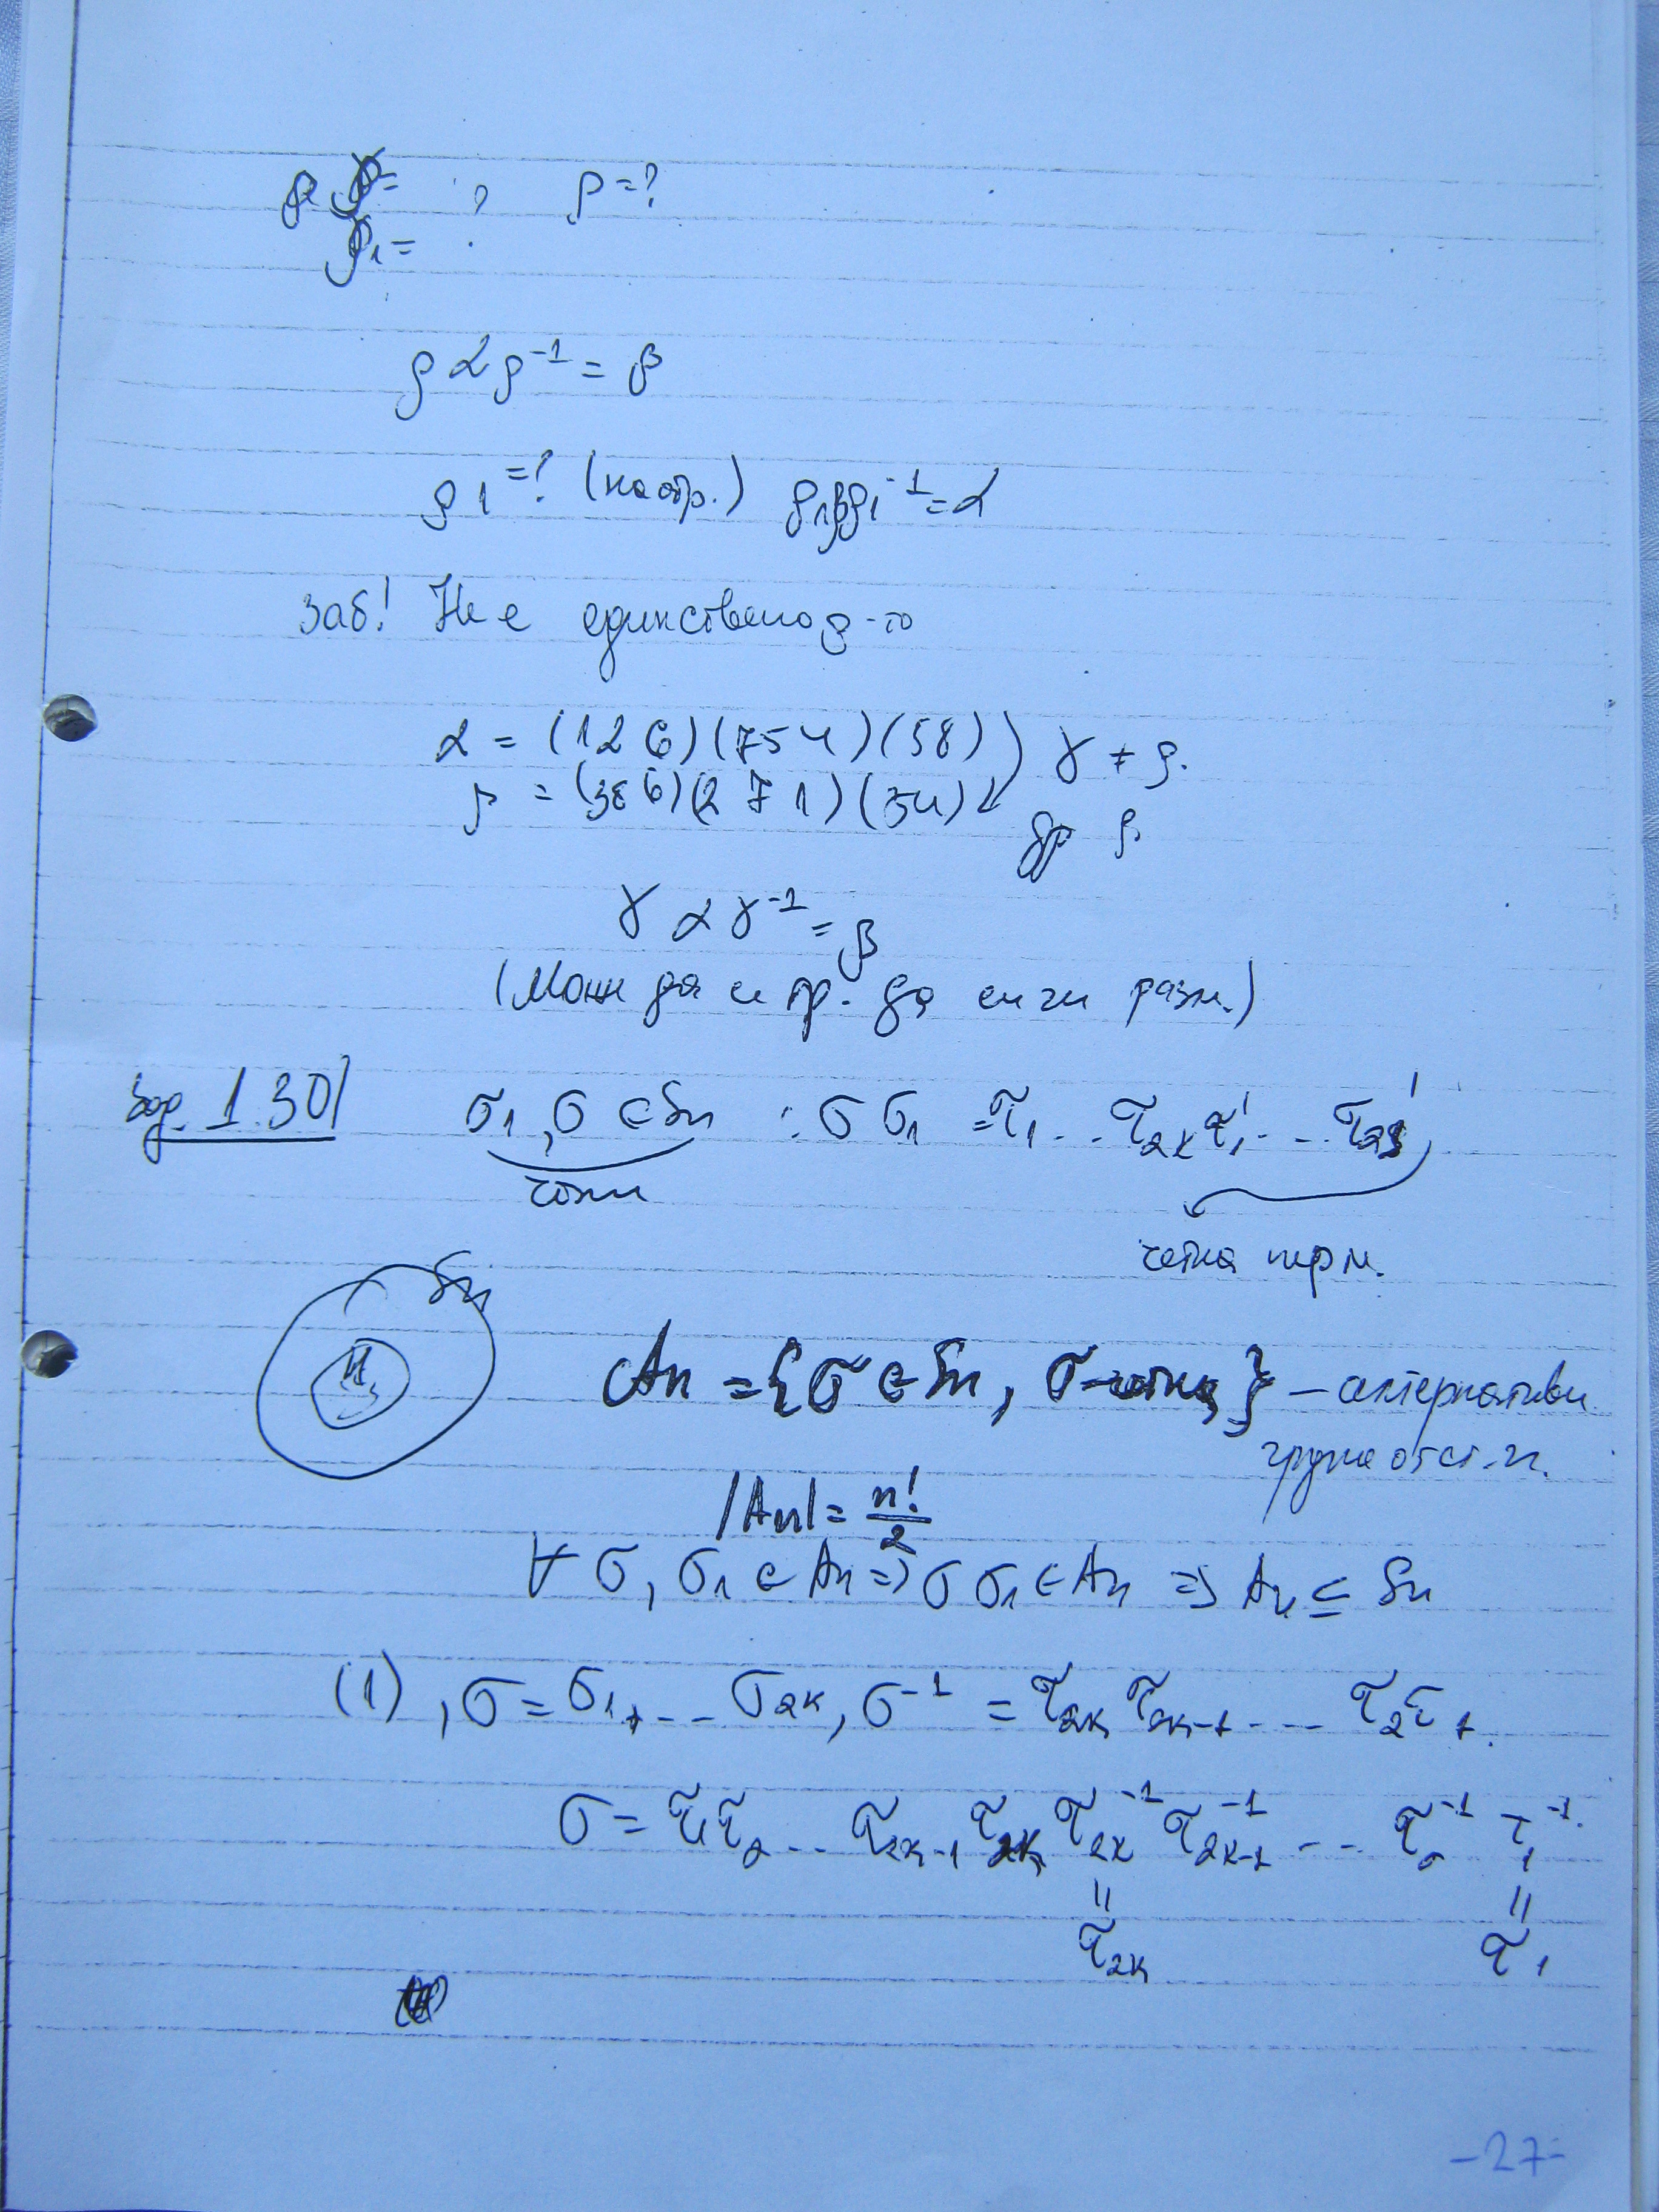 ρ = ?
ρ₁ =
ραρ⁻¹ = β
ρ₁ = ? (наопр.) ρ₁βρ₁⁻¹ = α
Заб! Не е единствено ρ-то
α = (1 2 6)(7 5 4)(3 8) γ ≠ ρ.
β = (3 8 6)(2 7 1)(5 4) др ρ
γαγ⁻¹ = β
(Може да се пр. да са ги разм.)
Зад. 1.30/ σ₁, σ ∈ Sn : σσ₁ = τ₁...τ₂ₖτ₁'...τ₂ₛ'
четни
четна перм.
Sn
An = {σ ∈ Sn, σ-четна} – алтернативн
група от ст. n.
|An| = n!/2
∀ σ, σ₁ ∈ An ⇒ σσ₁ ∈ An ⇒ An ≤ Sn
(1), σ = σ₁...σ₂ₖ, σ⁻¹ = τ₂ₖτ₂ₖ₋₁...τ₂τ₁.
σ = τ₁τ₂...τ₂ₖ₋₁τ₂ₖτ₂ₖ⁻¹τ₂ₖ₋₁⁻¹...τ₂⁻¹τ₁⁻¹.
= =
τ₂ₖ τ₁
-27-